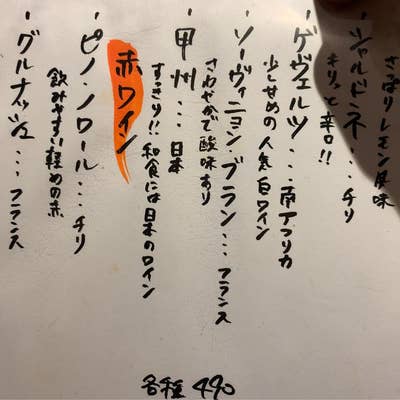 さっぱりレモン風味
・シャルドネ...チリ
キリッと辛口!!
・ゲヴェルツ...南アフリカ
少し甘めの人気白ワイン
・ソーヴィニヨン・ブラン...フランス
さわやかで酸味あり
・甲州...日本
すっきり!!和食には日本のワイン
赤ワイン
・ピノ・ノワール...チリ
飲みやすい軽めの赤
・グルナッシュ...フランス
各種 490